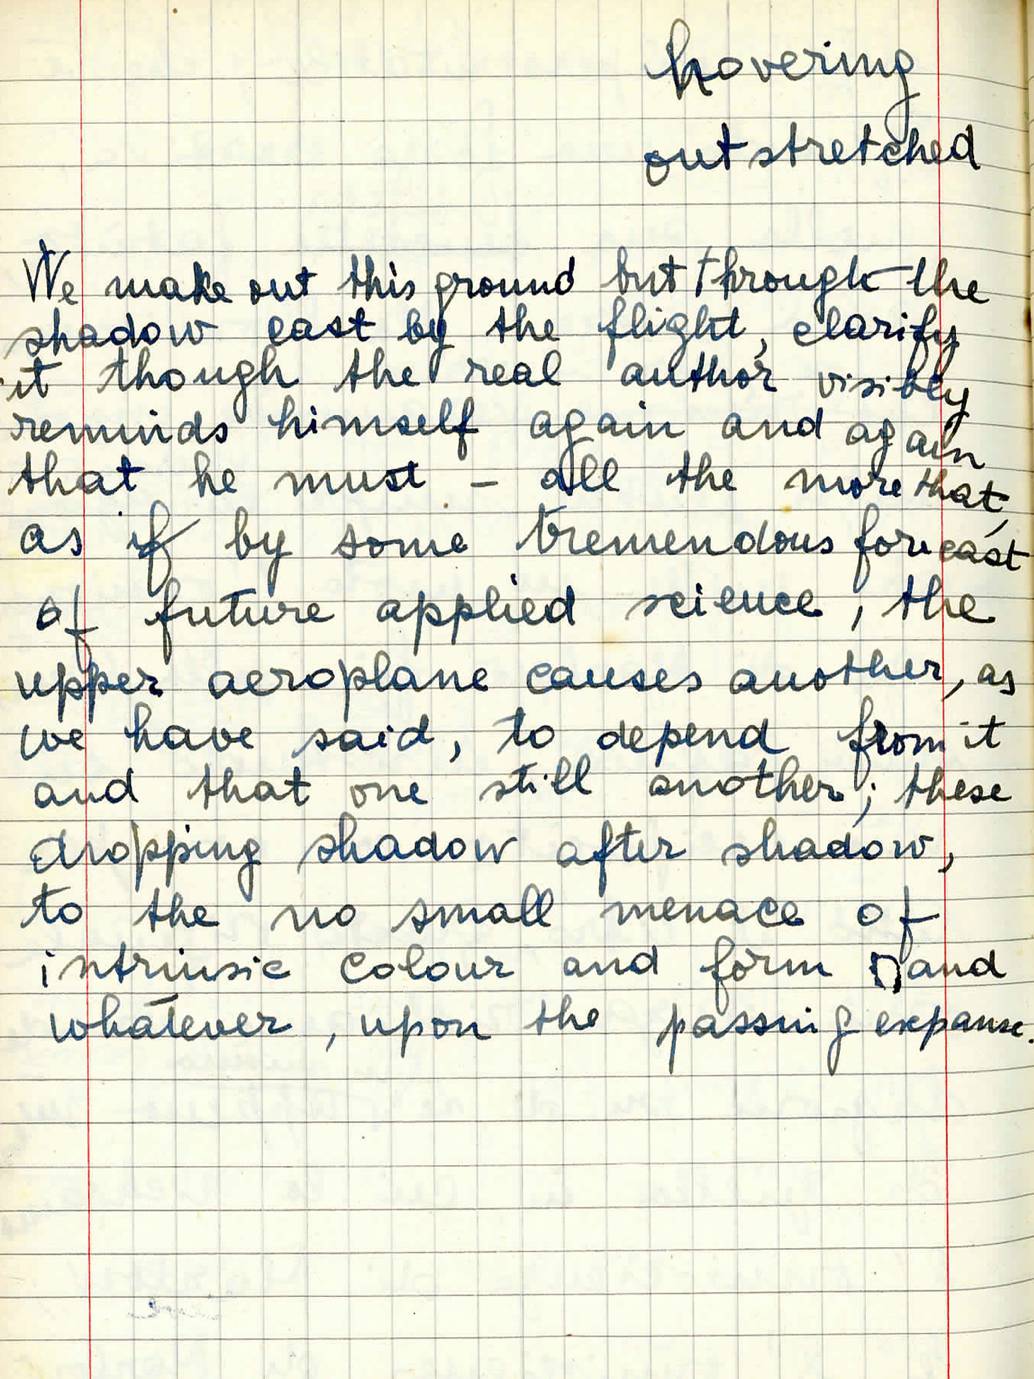 hovering
outstretched
We make out this ground but through the
shadow cast by the flight, clarify
it though the real author visibly
reminds himself again and again
that he must – all the more that,
as if by some tremendous forecast
of future applied science, the
upper aeroplane causes another, as
we have said, to depend from it
and that one still another; these
dropping shadow after shadow,
to the no small menace of
intrinsic colour and form and
whatever, upon the passing expanse.